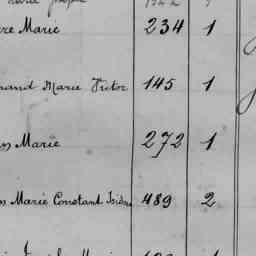 re Marie 234 1
nand Marie Victor 145 1
n Marie 272 1
s Marie Constant Isidore 489 2